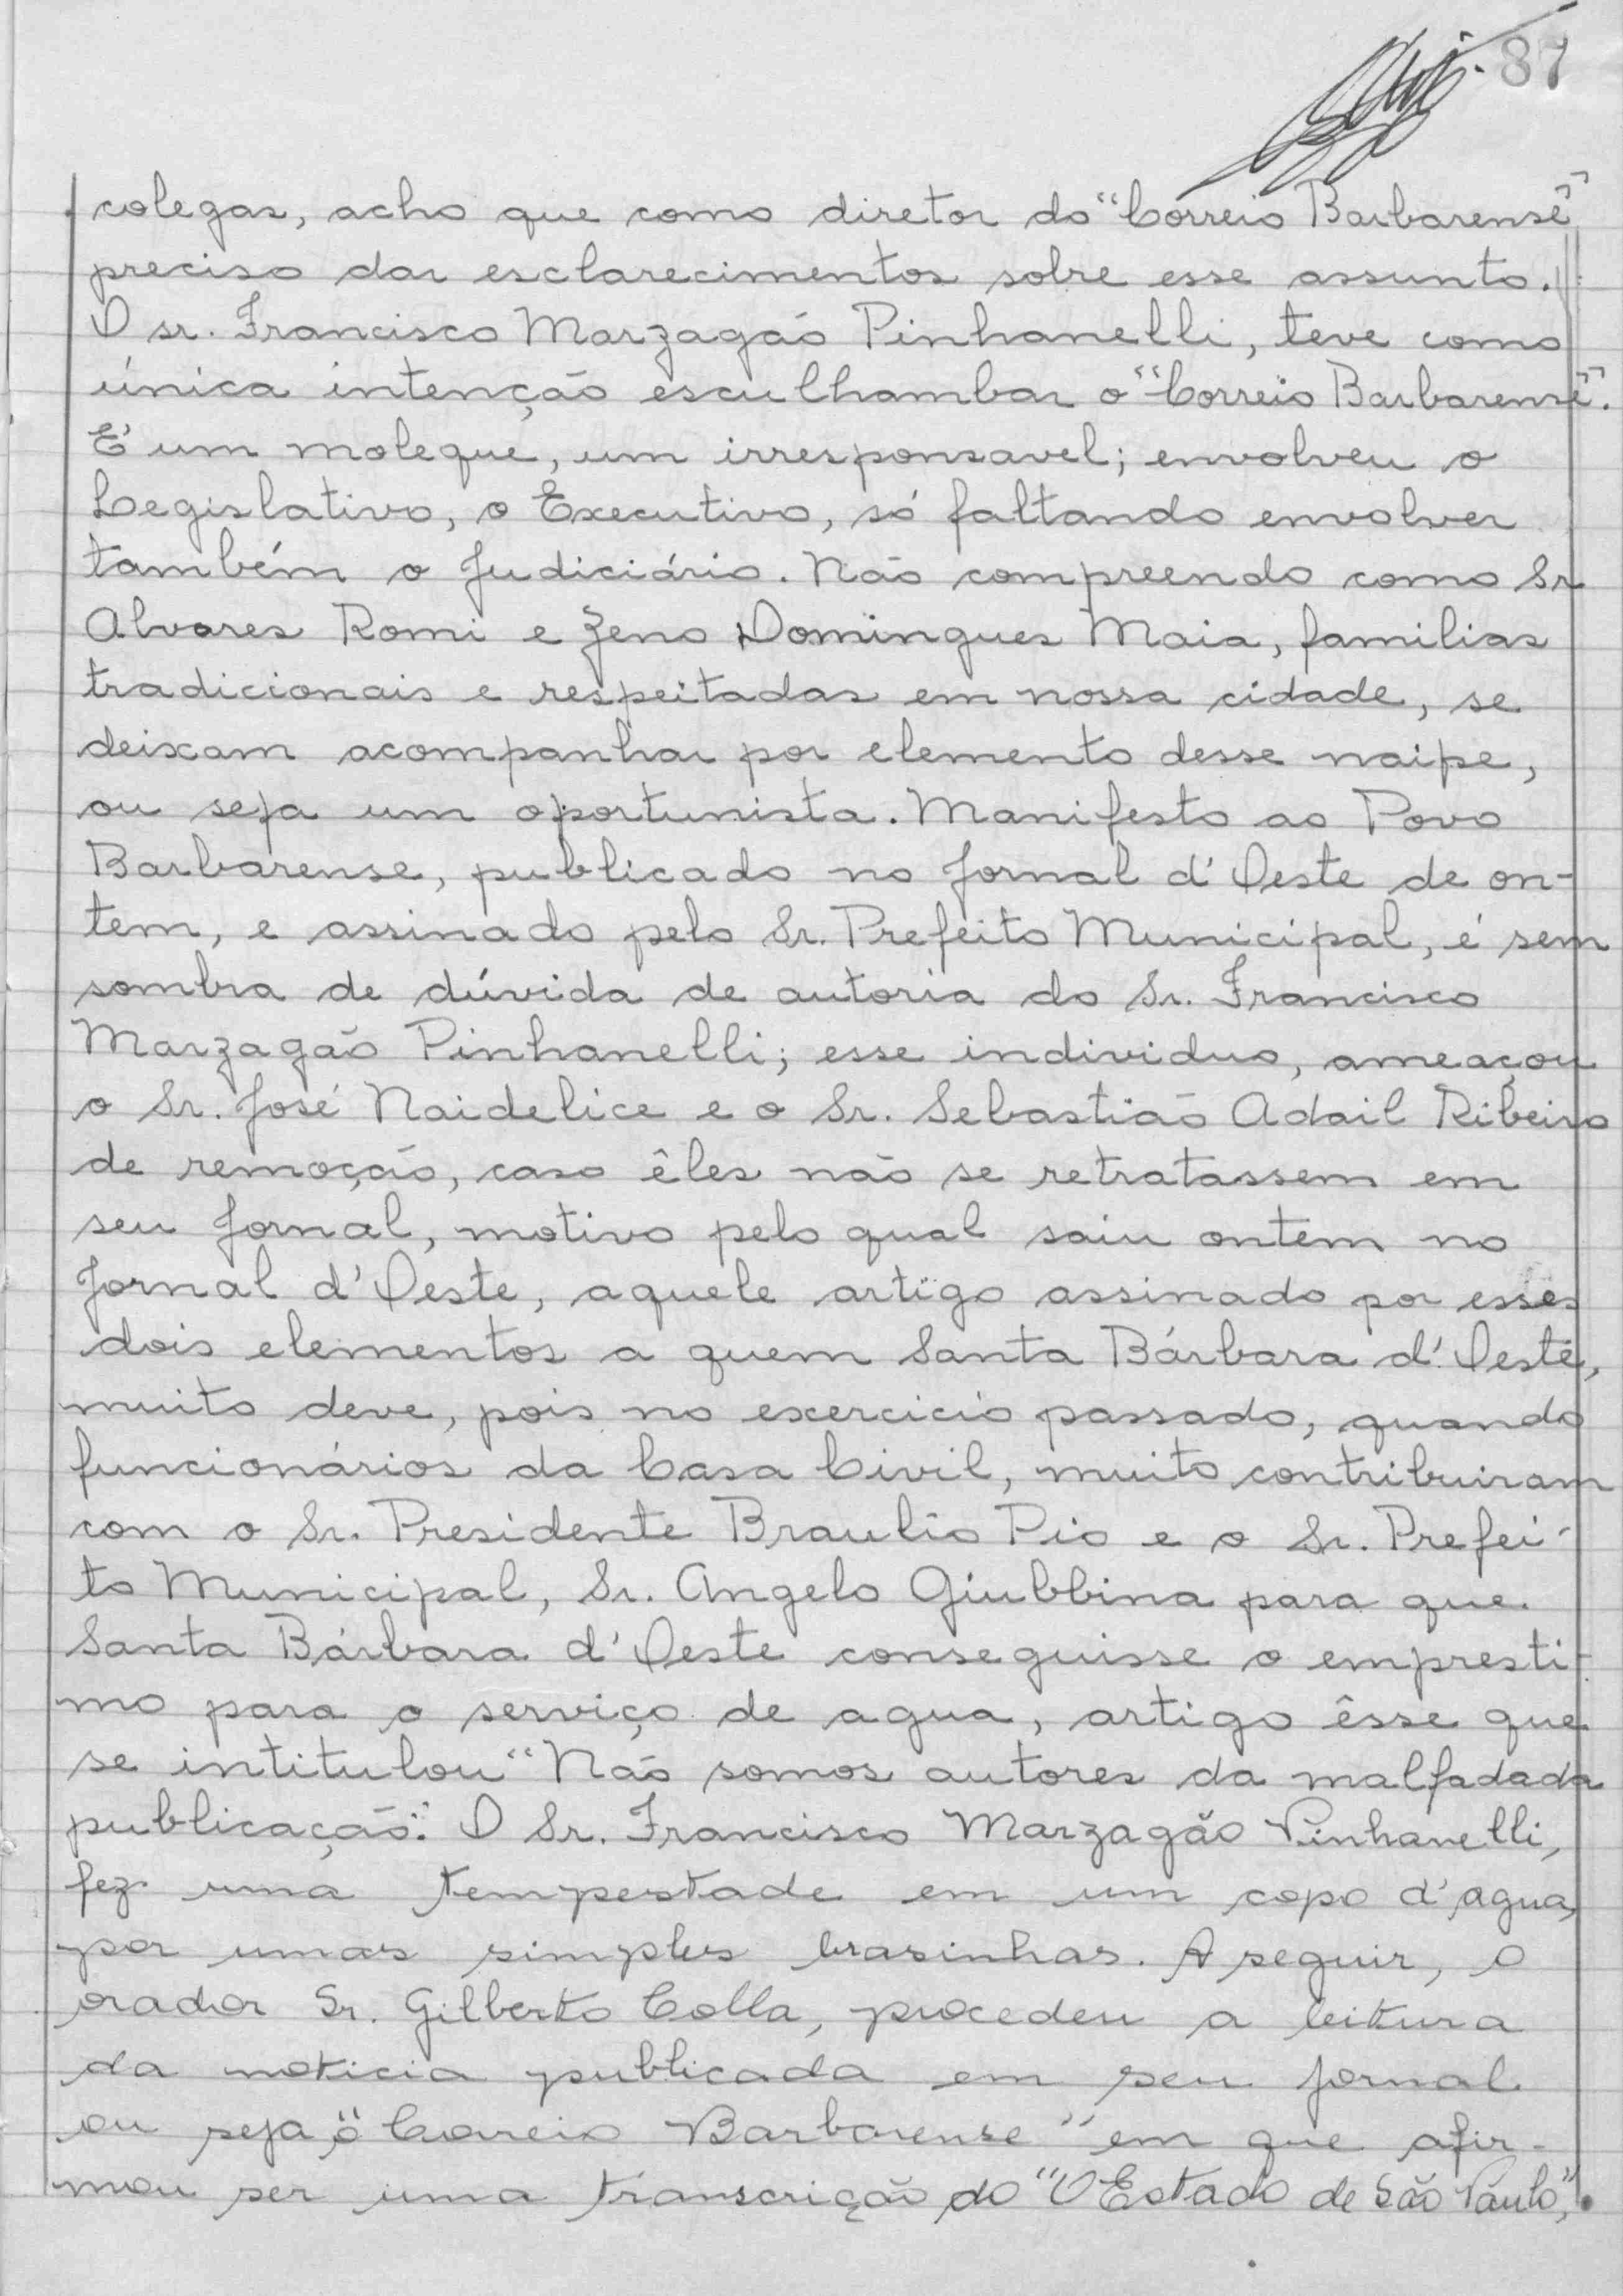 87
colegas, acho que como diretor do "Correio Barbarense"
preciso dar esclarecimentos sobre esse assunto.
O sr. Francisco Marzagão Pinhanelli, teve como
única intenção esculhambar o "Correio Barbarense".
É um moleque, um irresponsavel; envolveu o
Legislativo, o Executivo, só faltando envolver
também o Judiciário. Não compreendo como Sr
Alvares Romi e Zeno Domingues Maia, familias
tradicionais e respeitadas em nossa cidade, se
deixam acompanhar por elemento desse naipe,
ou seja um oportunista. Manifesto ao Povo
Barbarense, publicado no Jornal d'Oeste de on-
tem, e assinado pelo Sr. Prefeito Municipal, é sem
sombra de dúvida de autoria do Sr. Francisco
Marzagão Pinhanelli; esse individuo, ameaçou
o Sr. José Naidelice e o Sr. Sebastião Adail Ribeiro
de remoção, caso êles não se retratassem em
seu Jornal, motivo pelo qual saiu ontem no
Jornal d'Oeste, aquele artigo assinado por esses
dois elementos a quem Santa Bárbara d'Oeste,
muito deve, pois no exercicio passado, quando
funcionários da Casa Civil, muito contribuiram
com o Sr. Presidente Braulio Pio e o Sr. Prefei-
to Municipal, Sr. Angelo Giubbina para que
Santa Bárbara d'Oeste conseguisse o empresti-
mo para o serviço de agua, artigo êsse que
se intitulou "Não somos autores da malfadada
publicação". O Sr. Francisco Marzagão Pinhanelli,
fez uma tempestade em um copo d'agua,
por umas simples brasinhas. A seguir, o
orador Sr. Gilberto Colla, procedeu a leitura
da noticia publicada em seu jornal
ou seja "o Correio Barbarense" em que afir-
mou ser uma transcrição do "O Estado de São Paulo",.